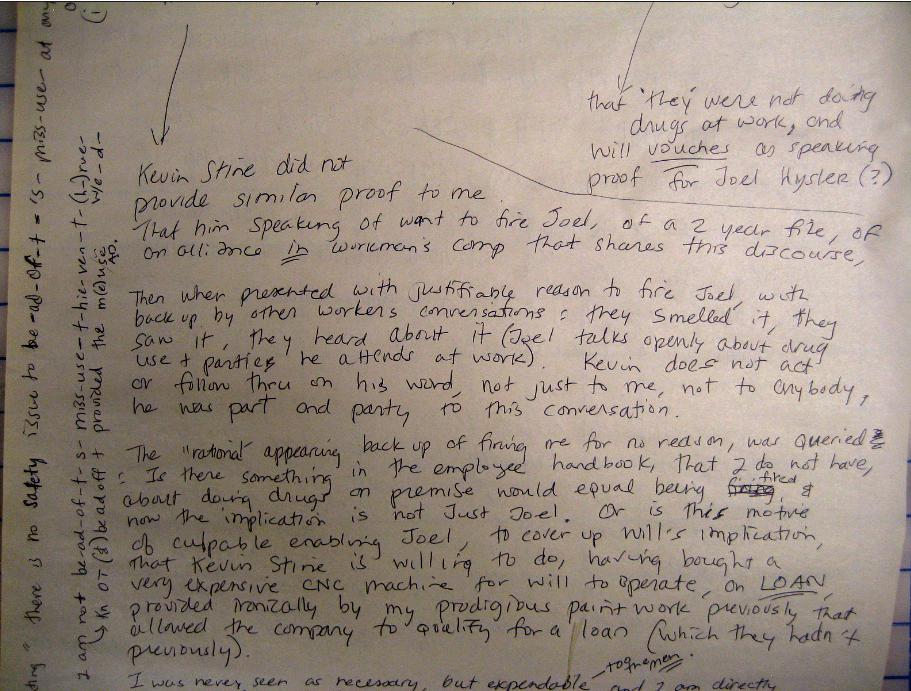 that 'they' were not doing
drugs at work, and
will vouches as speaking
proof for Joel Hysler (?)
Kevin Stine did not
provide similar proof to me.
That him speaking of want to fire Joel, of a 2 year file, of
an alliance in workman's comp that shares this discourse,
Then when presented with justifiable reason to fire Joel, with
back up by other workers conversations: they smelled it, they
saw it, they heard about it (Joel talks openly about drug
use + parties he attends at work). Kevin does not act
or follow thru on his word, not just to me, not to anybody,
he was part and party to this conversation.
The "rational" appearing back up of firing me for no reason, was queried
: Is there something in the employee handbook, that I do not have,
about doing drugs on premise would equal being fired &
now the implication is not Just Joel. Or is this motive
of culpable enabling Joel, to cover up will's implication,
that Kevin Stine is willing to do, having bought a
very expensive CNC machine for will to operate, on LOAN,
provided ironically by my prodigious paint work previously that
allowed the company to qualify for a loan (which they hadn't
previously).
I was never seen as necessary, but expendable and I am directly
there is no safety issue to be-ad-of-t = 's- miss-user at any
I am not be-ad-of-t-s- miss-use-t-hie-ven-t-
provided the